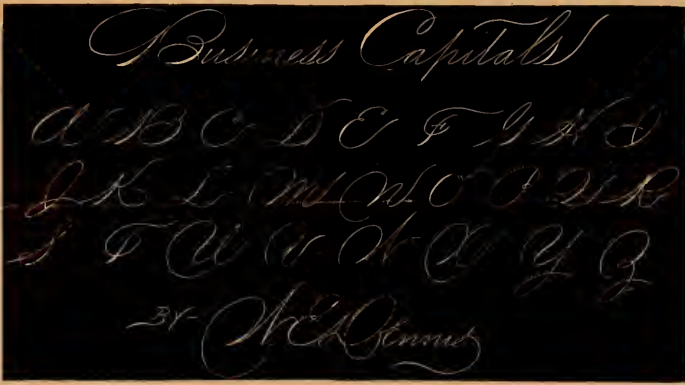 Business Capitals
A B C D E F G H I
J K L M N O P Q R
S T U V W X Y Z
BY- W.E. Dennis